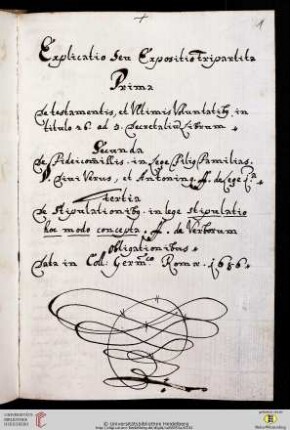 1
Explicatio seu Expositio Tripartita
Prima
De testamentis, et Ultimis Voluntatib9, in
titulo 26. ad 3. Decretaliu Librum.
Secunda
De Fideicomissis. in Lege Filius Familias.
§. Divi Verus, et Antoninus. ff. de Leg
Tertia
De Stipulationib9 in lege stipulatio
hoc modo concepta. ff. de Verborum
obligationibus.
Data in Coll. Germco Romæ. 1686.
© Universitätsbibliothek Heidelberg